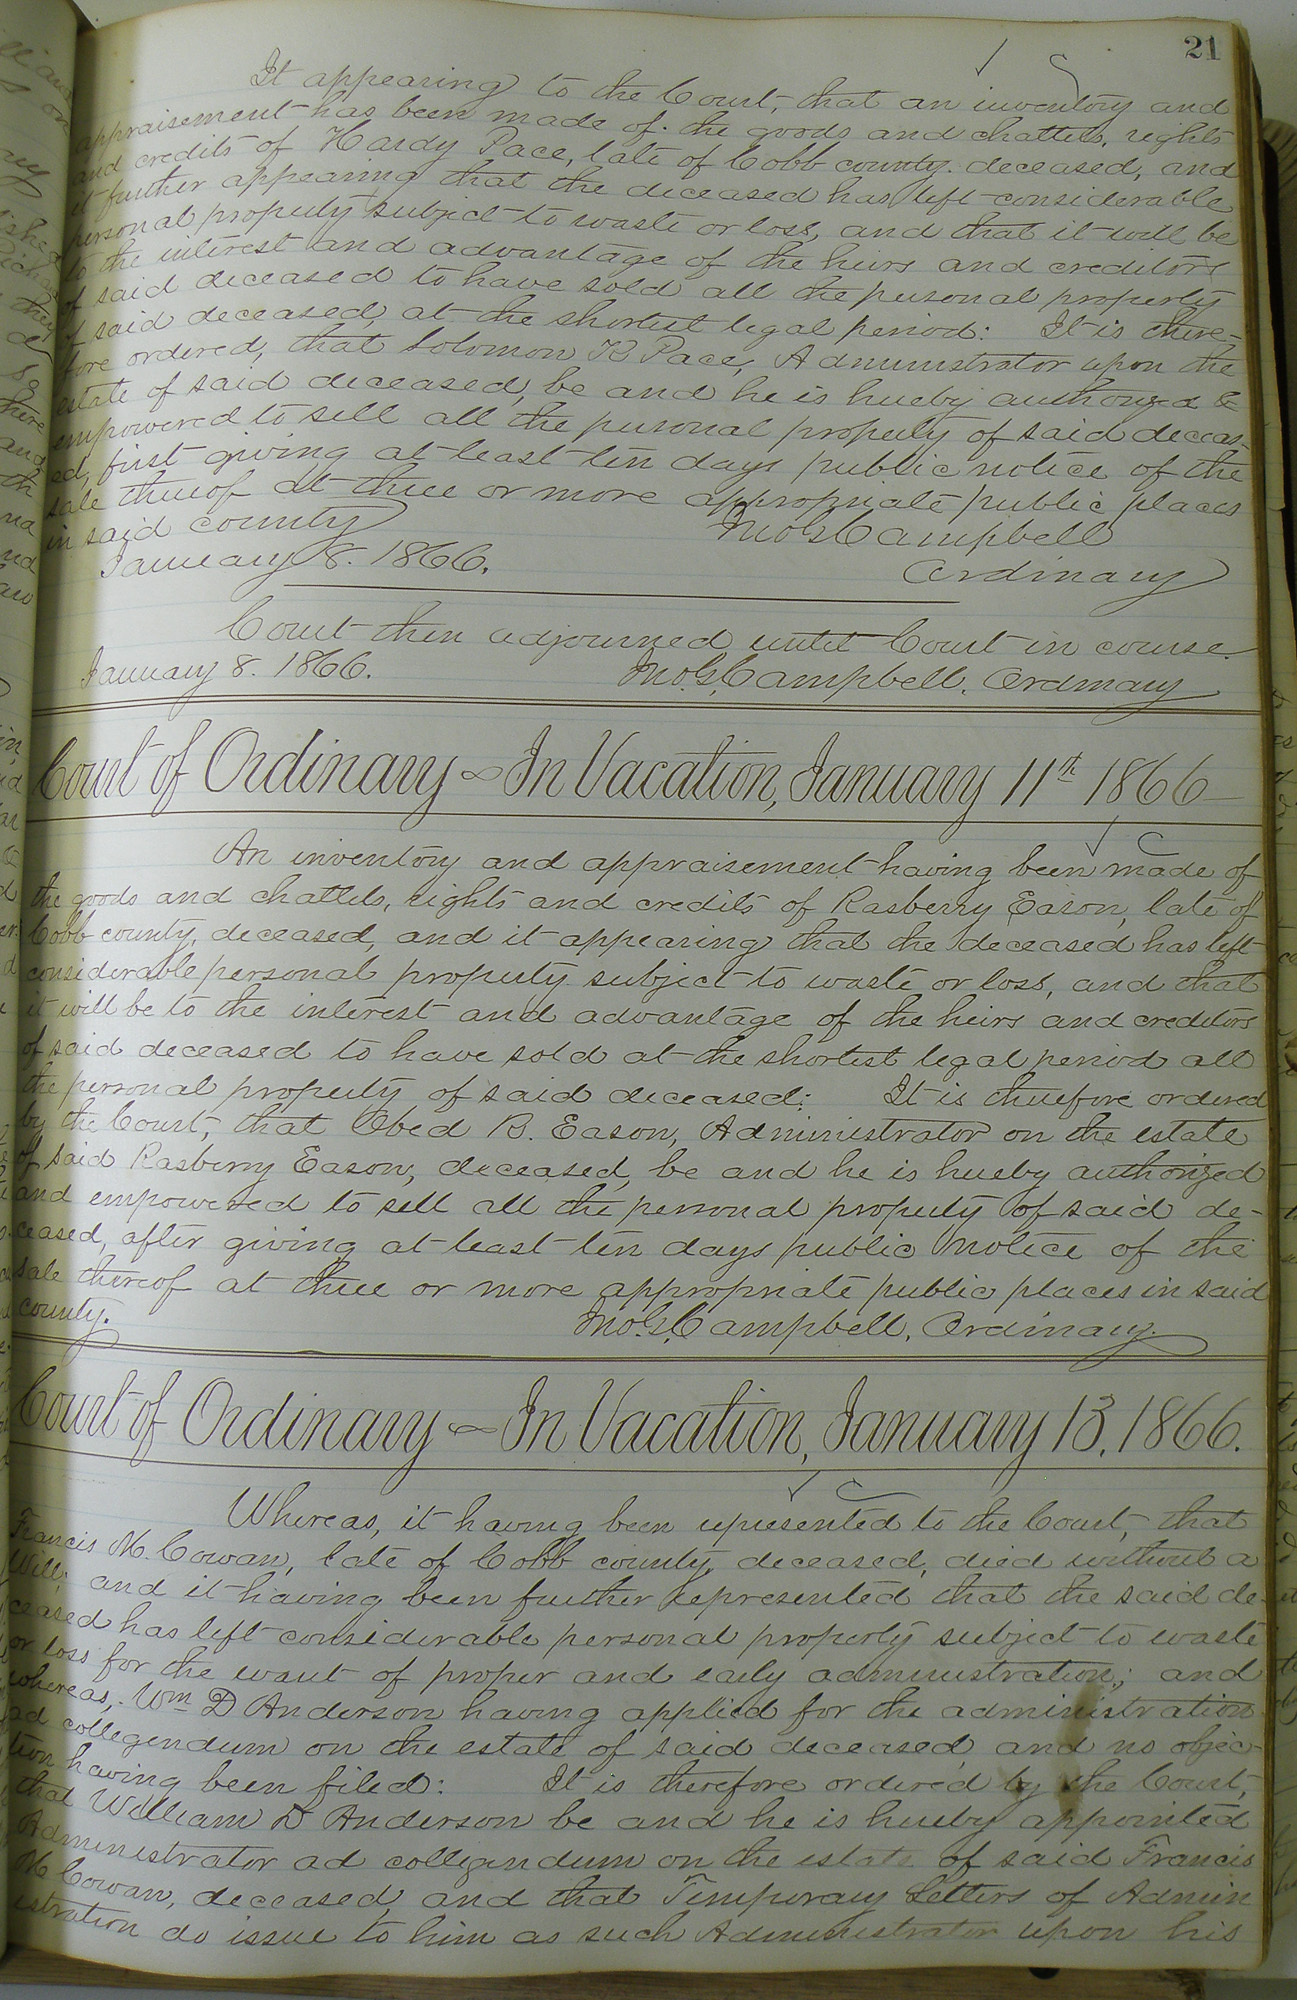 21
It appearing to the Court, that an inventory and
appraisement has been made of the goods and chattels, rights
and credits of Hardy Pace, late of Cobb county deceased, and
it further appearing that the deceased has left considerable
personal property subject to waste or loss, and that it will be
to the interest and advantage of the heirs and creditors
of said deceased to have sold all the personal property
of said deceased, at the shortest legal period: It is there-
fore ordered, that Solomon K Pace, Administrator upon the
estate of said deceased, be and he is hereby authorized &
empowered to sell all the personal property of said deceas-
ed, first giving at least ten days public notice of the
sale thereof at three or more appropriate public places
in said county
Jno G. Campbell
January 8. 1866.
Ordinary
Court then adjourned until Court in course.
January 8. 1866.
Jno. G. Campbell, Ordinary
Court of Ordinary ~ In Vacation, January 11th 1866
An inventory and appraisement having been made of
the goods and chattels, rights and credits of Rasberry Eason, late of
Cobb county, deceased, and it appearing that the deceased has left
considerable personal property subject to waste or loss, and that
it will be to the interest and advantage of the heirs and creditors
of said deceased to have sold at the shortest legal period all
the personal property of said deceased: It is therefore ordered
by the Court, that Obed B. Eason, Administrator on the estate
of said Rasberry Eason, deceased, be and he is hereby authorized
and empowered to sell all the personal property of said de-
ceased, after giving at least ten days public notice of the
sale thereof at three or more appropriate public places in said
county.
Jno. G. Campbell, Ordinary.
Court of Ordinary ~ In Vacation, January 13, 1866.
Whereas, it having been represented to the Court, that
Francis M. Cowan, late of Cobb county, deceased, died without a
Will; and it having been further represented that the said de-
ceased has left considerable personal property subject to waste
or loss for the want of proper and early administration; and
whereas, Wm D Anderson having applied for the administration
ad collegendum on the estate of said deceased and no objec-
tion having been filed: It is therefore ordered by the Court,
that William D Anderson be and he is hereby appointed
Administrator ad collegendum on the estate of said Francis
M Cowan, deceased, and that Temporary Letters of Admin
istration do issue to him as such Administrator upon his